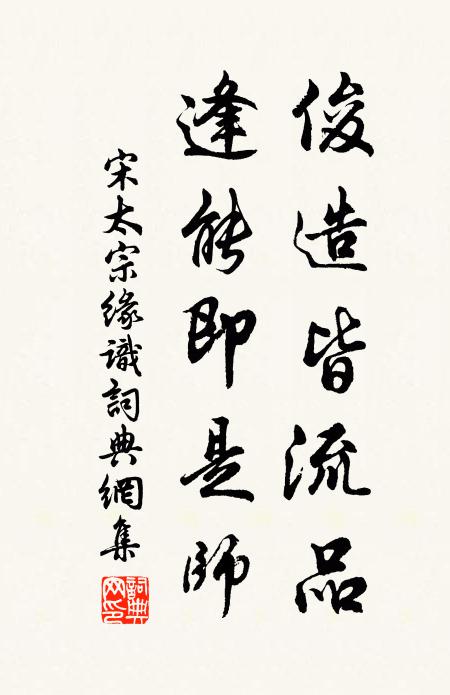 俊造皆流品
逢能即是師
宋太宗緣識詞典網集
詞典網印